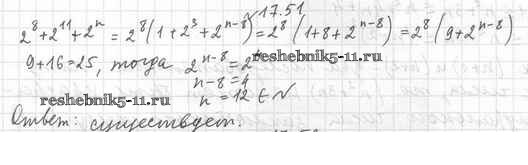 17.51
2^8+2^11+2^n = 2^8(1+2^3+2^(n-8)) = 2^8(1+8+2^(n-8)) = 2^8(9+2^(n-8))
9+16=25, тогда 2^(n-8)=2^4
reshebnik5-11.ru
n-8=4
reshebnik5-11.ru
n=12 ∈ N
Ответ: существует.